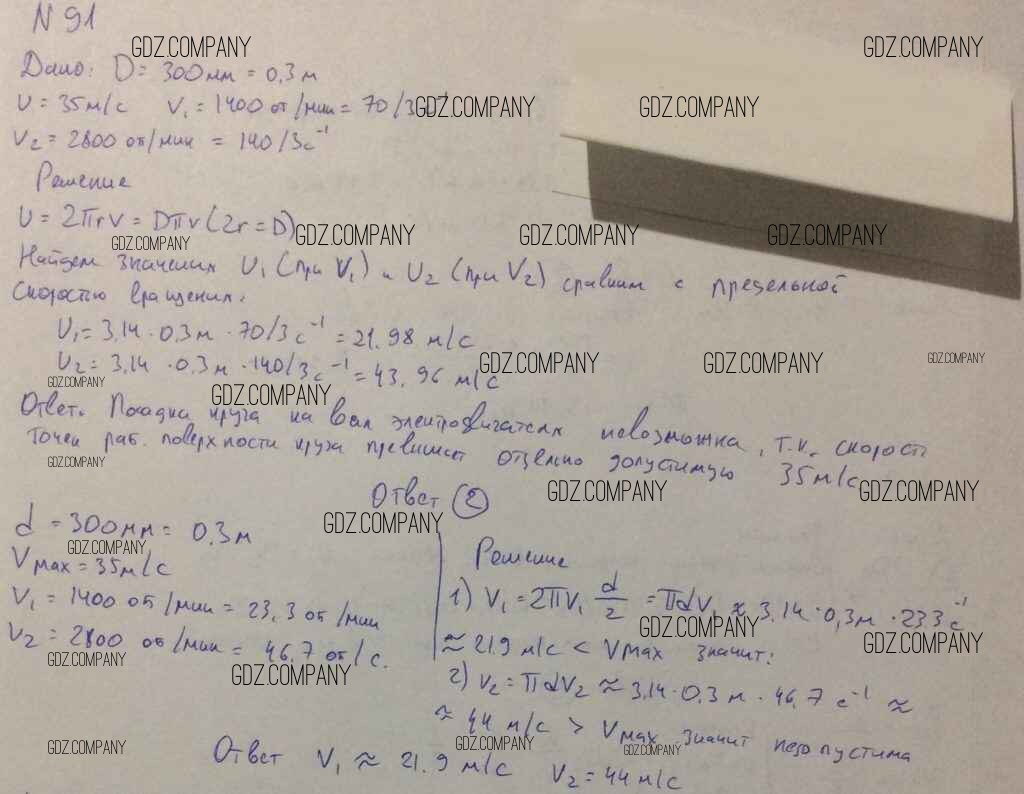 N 91
GDZ.COMPANY GDZ.COMPANY
Дано: D = 300 мм = 0,3 м
υ = 35 м/с ν₁ = 1400 об/мин = 70/3
GDZ.COMPANY GDZ.COMPANY
ν₂ = 2800 об/мин = 140/3 с⁻¹
Решение
υ = 2πrν = Dπν (2r = D)
GDZ.COMPANY GDZ.COMPANY GDZ.COMPANY GDZ.COMPANY
Найдем значения υ₁ (при ν₁) и υ₂ (при ν₂) сравним с предельной
скоростью вращения:
υ₁ = 3,14 · 0,3 м · 70/3 с⁻¹ = 21,98 м/с
υ₂ = 3,14 · 0,3 м · 140/3 с⁻¹ = 43,96 м/с
GDZ.COMPANY GDZ.COMPANY GDZ.COMPANY GDZ.COMPANY GDZ.COMPANY
Ответ. Посадка круга на вал электродвигателя невозможна, т.к. скорость
точек раб. поверхности круга превышает допустимую 35 м/с
GDZ.COMPANY GDZ.COMPANY GDZ.COMPANY
Ответ 2
GDZ.COMPANY
d = 300 мм = 0.3 м
GDZ.COMPANY
Vмах = 35 м/с
ν₁ = 1400 об/мин = 23,3 об/мин
ν₂ = 2800 об/мин = 46,7 об/с.
GDZ.COMPANY GDZ.COMPANY
Решение
1) V₁ = 2πν₁ d/2 = πdν₁ ≈ 3,14 · 0,3 м · 23,3 с⁻¹
GDZ.COMPANY GDZ.COMPANY
≈ 21,9 м/с < Vмах значит:
2) v₂ = πdν₂ ≈ 3,14 · 0,3 м · 46,7 с⁻¹ ≈
≈ 44 м/с > Vмах значит недопустима
GDZ.COMPANY GDZ.COMPANY GDZ.COMPANY
Ответ V₁ ≈ 21.9 м/с V₂ = 44 м/с